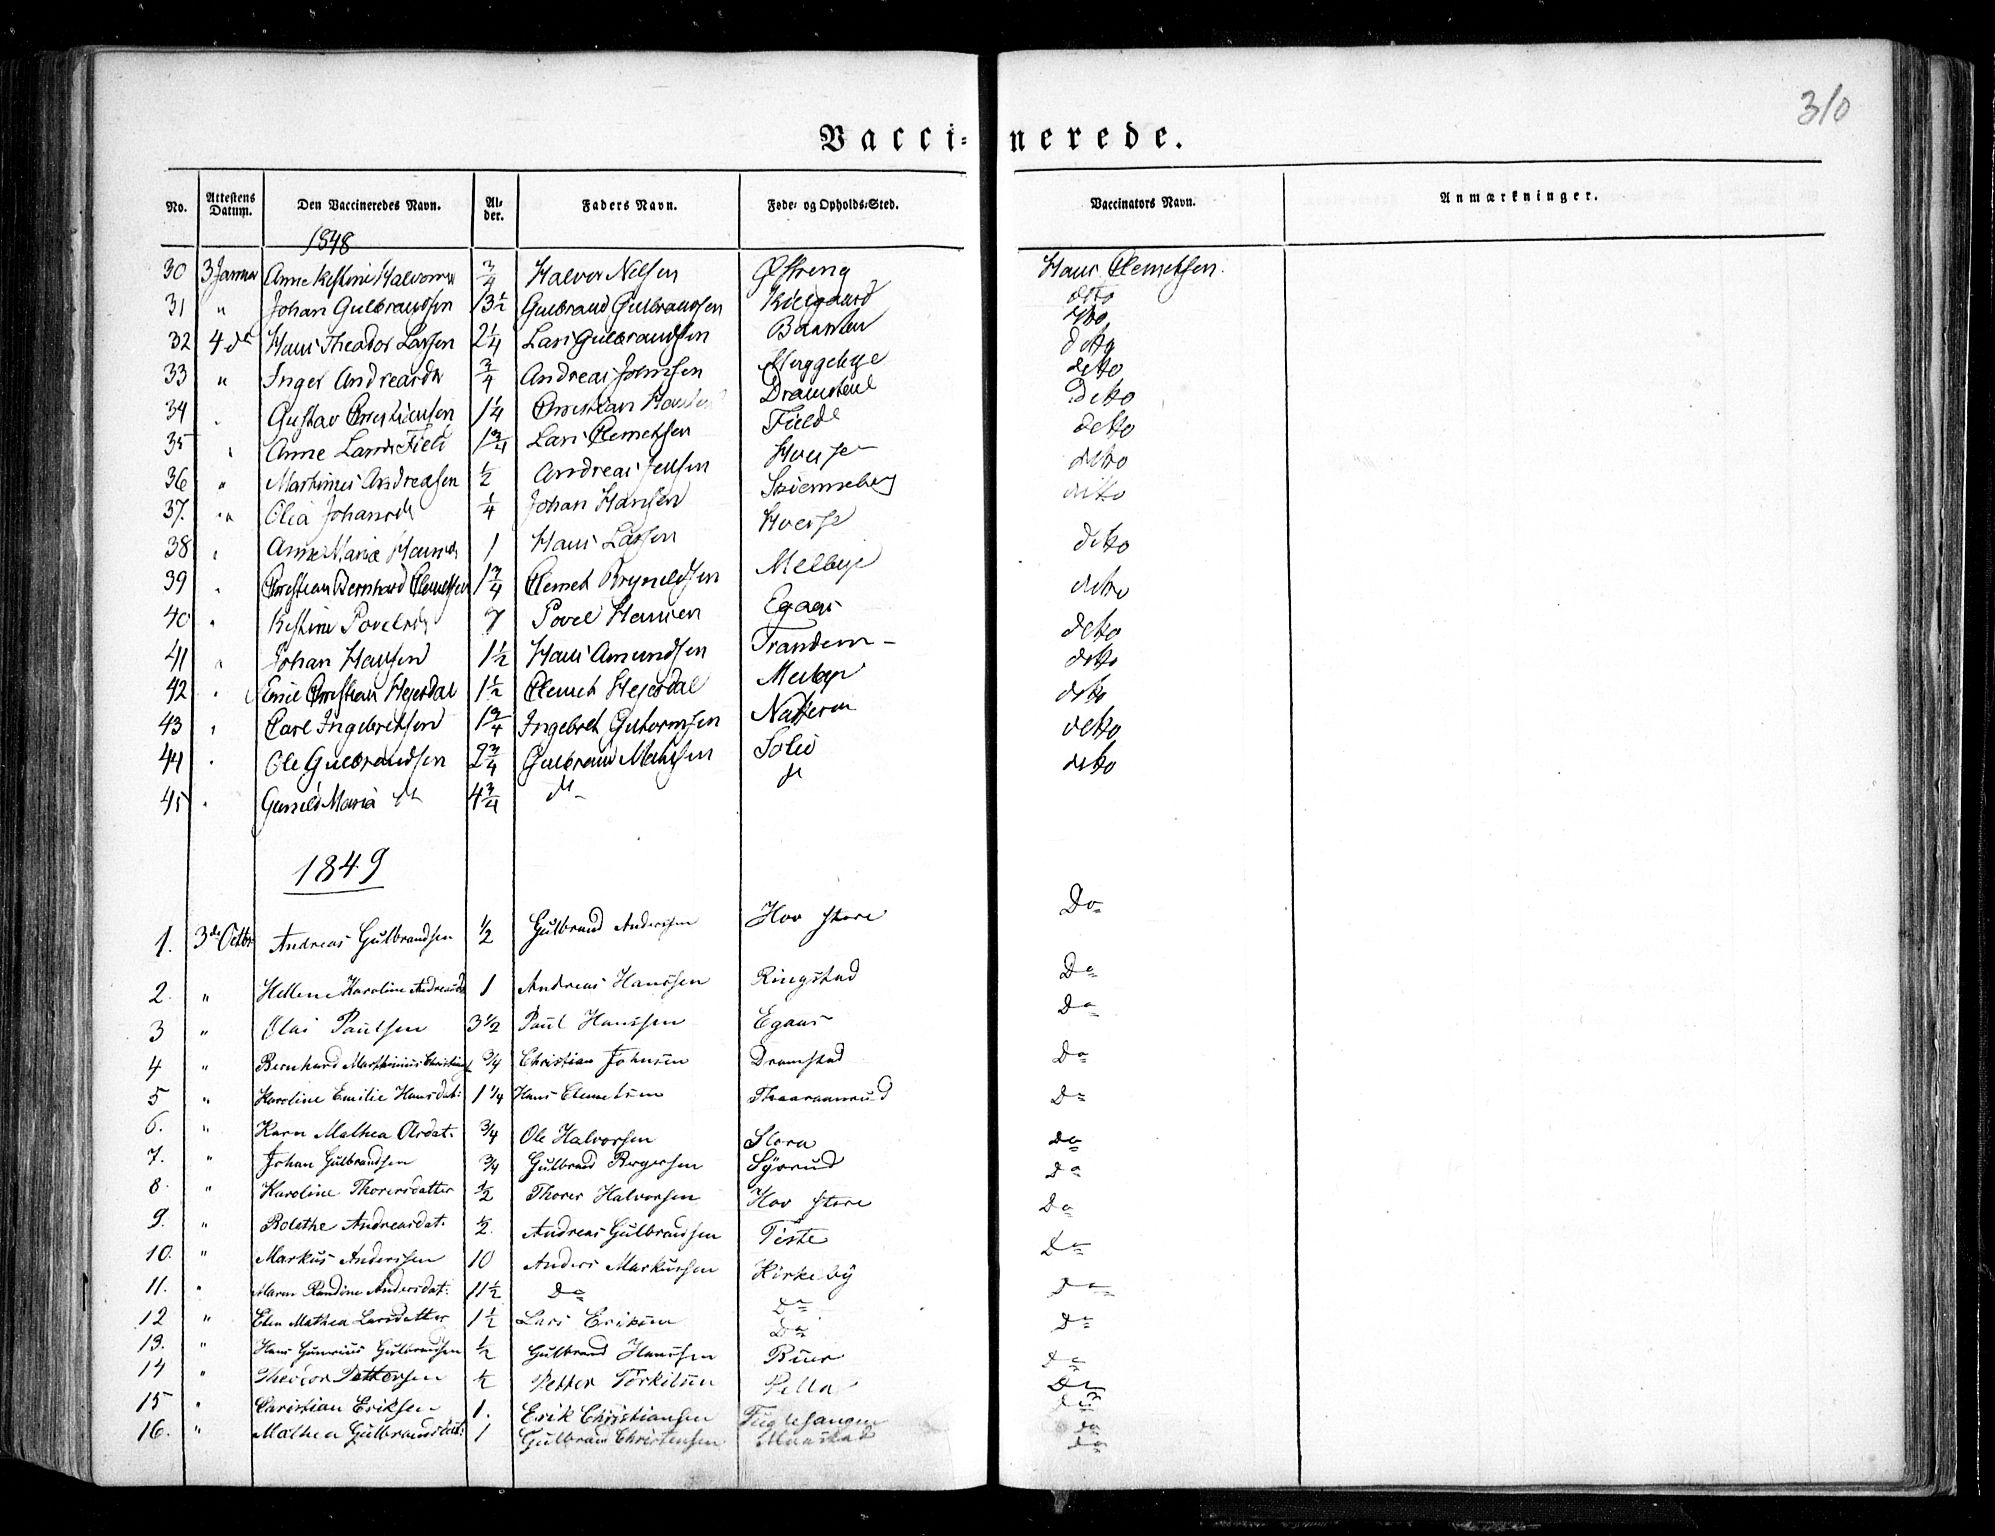 310
Vacci- nerede.
No. Attestens Datum. Den Vaccineredes Navn. Al-der. Faders Navn. Føde- og Opholds-Sted. Vaccinators Navn. Anmærkninger.
1848
30 3 Januar Anne Kristine Halvorsd 3/4 Halvor Nilsen Østreng Hans Clemetsen
31 " Johan Gulbrandsen 13 1/2 Gulbrand Gulbrandsen dito
32 4 de Hans Theador Larsen 2 1/4 Lars Gulbrandsen Braaten dito
33 " Inger Andreasdr 3/4 Andreas Johnsen dito
34 Gustav Christiansen 1 1/4 Christian Dramstad dito
35 " Anne Larsdr Field 1 3/4 Lars Clemetsen Field dito
36 " Martinus Andreasen 1/2 Andreas Jensen dito
37. " Olia Johansdr 1/4 Johan Hansen dito
38 " Anne Maria Hansdr 1 Hans Larsen dito
39 " Christian Bernhard Clemetsen 1 3/4 Clemet Brynildsen Melbye dito
40 " Kristine Povelsdr 7 Povel Hansen Egaas dito
41 " Johan Hansen 1 1/2 Hans Amundsen Trandem dito
42 " Emil Christian Hejerdal 1 1/2 Clemet Hejerdal Melbye dito
43 " Carl Ingebretsen 1 3/4 Ingebret Guttormsen dito
44 " Ole Gulbrandsen 2 3/4 Gulbrand dito
45 " Gunild Maria dr 4 3/4 do do
1849
1. 3de Octbr Andreas Gulbrandsen 1/2 Gulbrand Andersen Hov store Do
2. " Hellene Karoline Andreasd 1 Andreas Hanssen Ringstad Do
3 " Olai Paulsen 3 1/2 Paul Hanssen Egaas Do
4 " Bernhard Marthinius Christians 3/4 Christian Johnsen Dramstad Do
5 " Karoline Emilie Hansdat: 1 1/4 Hans Clemetsen Thaaraanrud Do
6. " Karn Mathea Olsdat. 3/4 Ole Halvorsen Slora do
7. " Johan Gulbrandsen 3/4 Gulbrand Børgersen Syverud Do
8. " Karoline Thorersdatter 1/2 Thorer Halvorsen Hov store Do
9. " Bolethe Andreasdat. 1/2. Andreas Gulbrandsen Teste Do
10. " Markus Anderssen 10 Anders Markussen Kirkeby Do
11. " Maren Randine Andersdat. 11 1/2 Do Do
12 " Elen Mathea Larsdatter 1 1/2 Lars Eriksen Do Do
13. " Hans Gunerius Gulbrandsen 1/2 Gulbrand Hanssen Buer Do
14 " Theodor Pettersen 1/2 Petter Torkilsen Pella Do
15 " Christian Eriksen 1. Erik Christiansen Fuglesangen Do
16. " Mathea Gulbrandsdat. 1 Gulbrand Christensen Maastad do